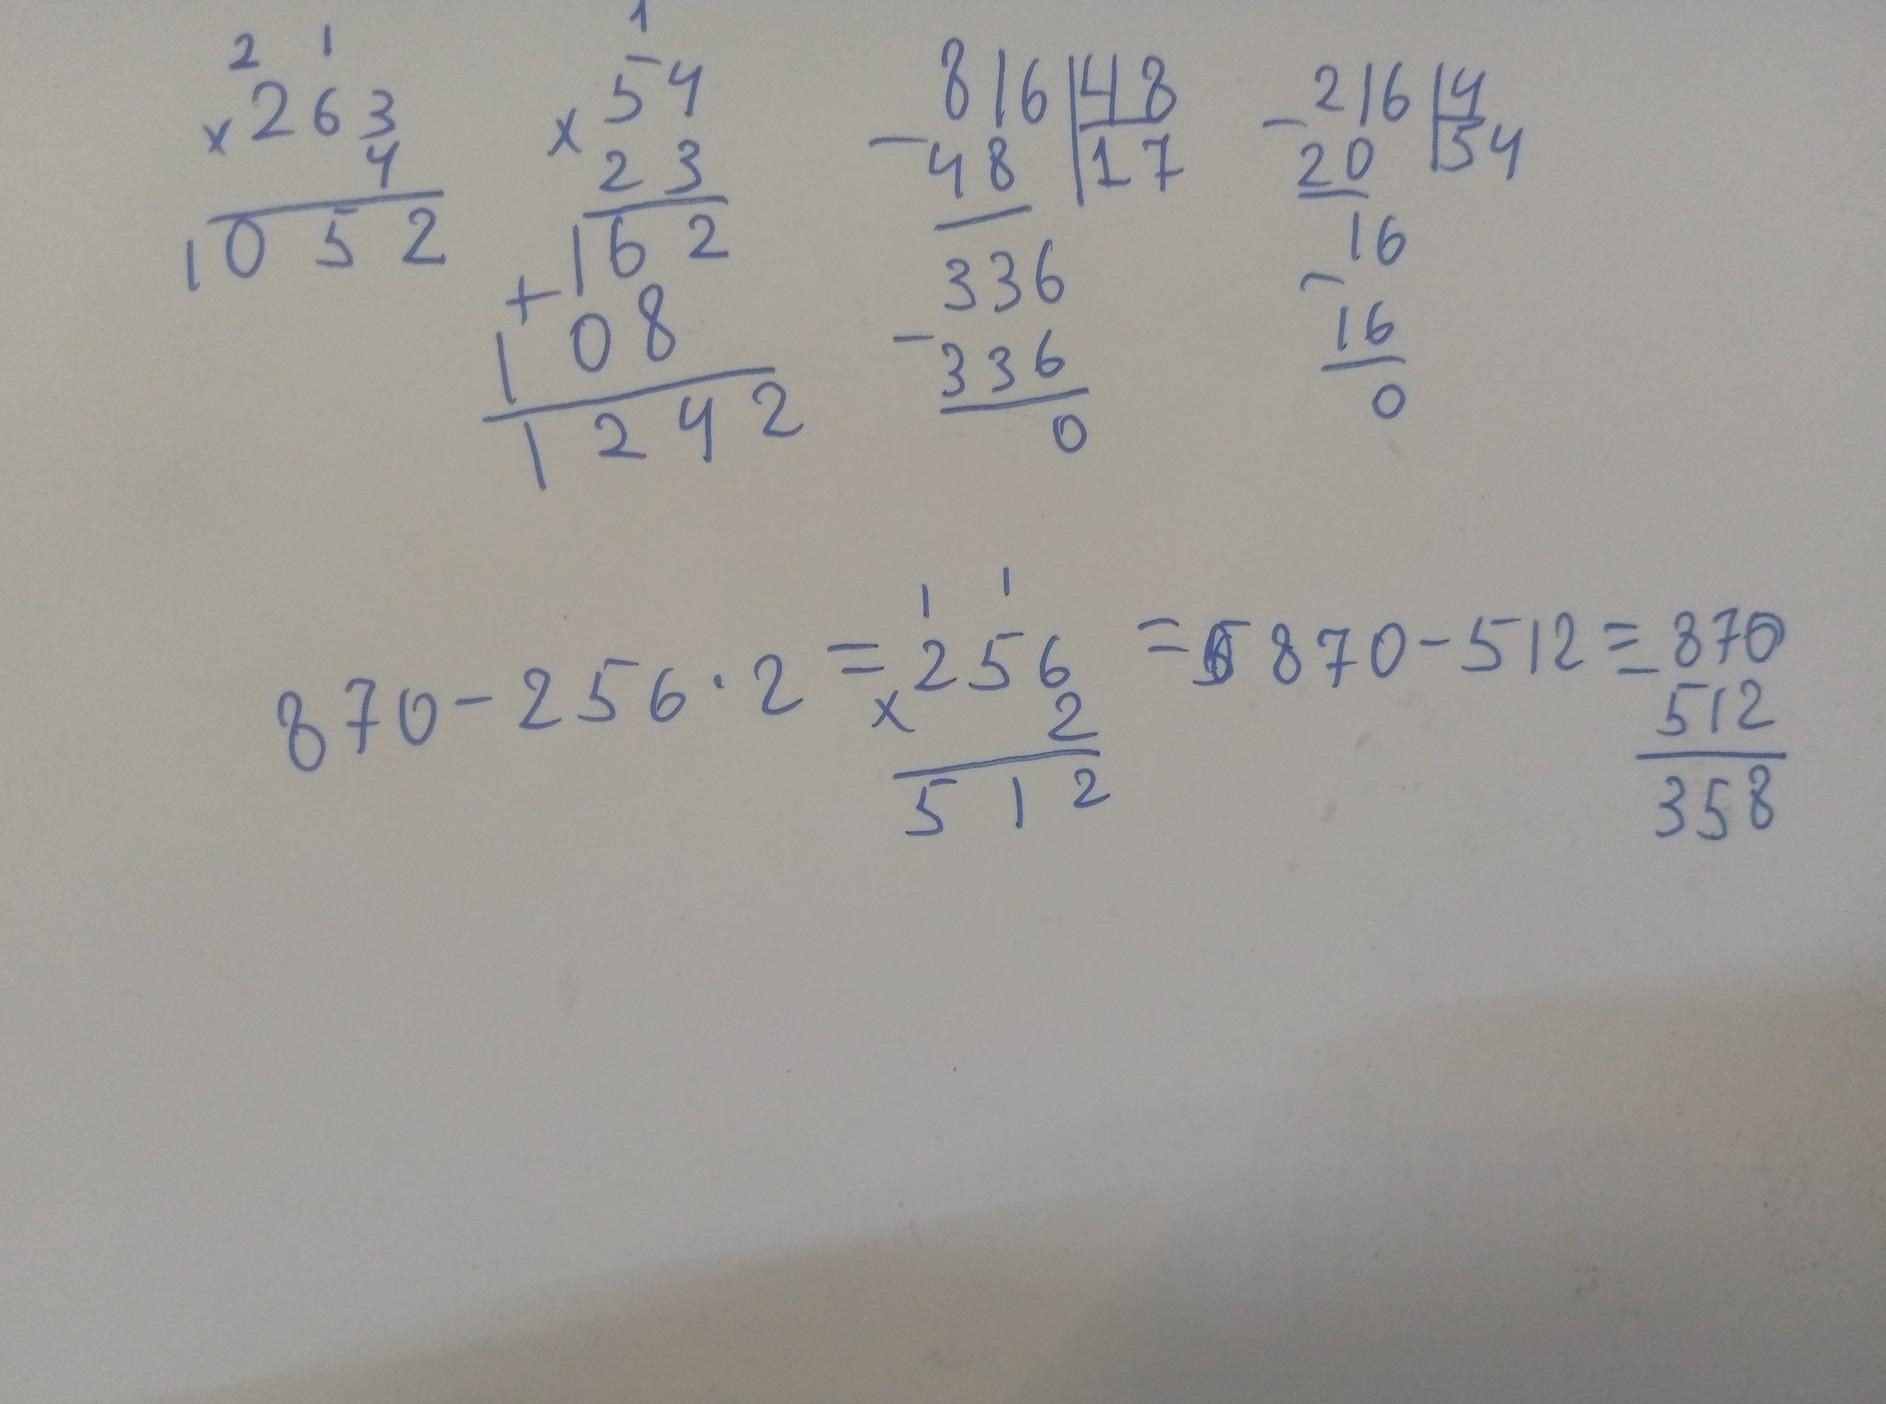 2 1
× 263
4
1052
1
× 54
23
162
+ 108
1242
816 | 48
- 48 | 17
336
- 336
0
- 216 | 4
20 | 54
16
-
16
0
870 - 256 · 2 = 256 = 870 - 512 = 870
1 1
× 2
512
- 512
358